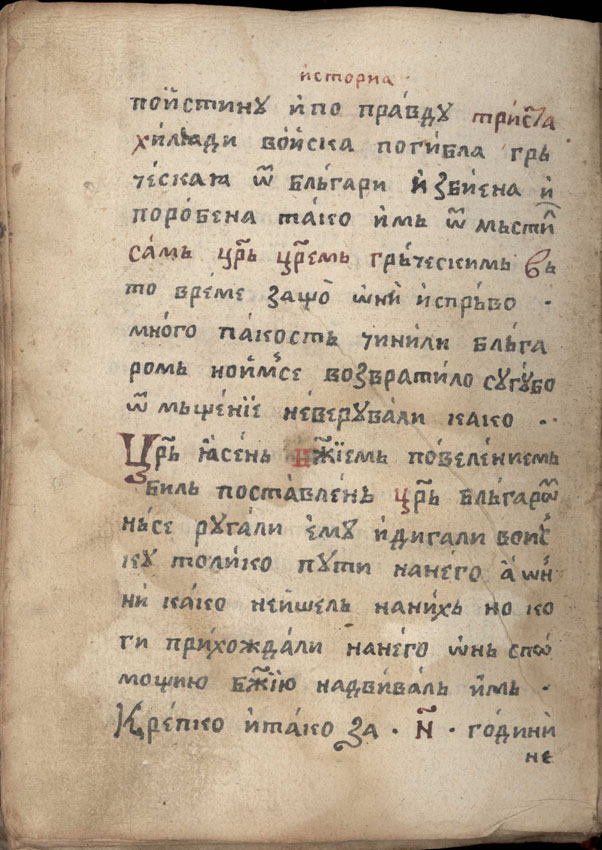 їсториа
поистинꙋ и по правдꙋ триста҃
хилѧди воиска погибла грь
ческаѧ ѿ бльгари избиена и
поробена тако имь ѿ мьсти
самь цр҃ь цр҃емь грьческимь вь
то време защо ѡни испрьво ·
много пакость чинили бльга
ромь но им се возвратило сꙋгꙋбо
ѿ мьщенїе неверꙋвали како ··
Цр҃ь Іасень бж҃їемь повелениемь
биль поставлень цр҃ь бльгарѡ
нь се рꙋгали емꙋ и дигали воис
кꙋ толико пꙋти на него а ѡн
ни како не ишель на нихь но ко
ги прихождали на него ѡнь спо
мощию бж҃їю надвиваль имь ·
Крепко и тако за · н҃ · години
не